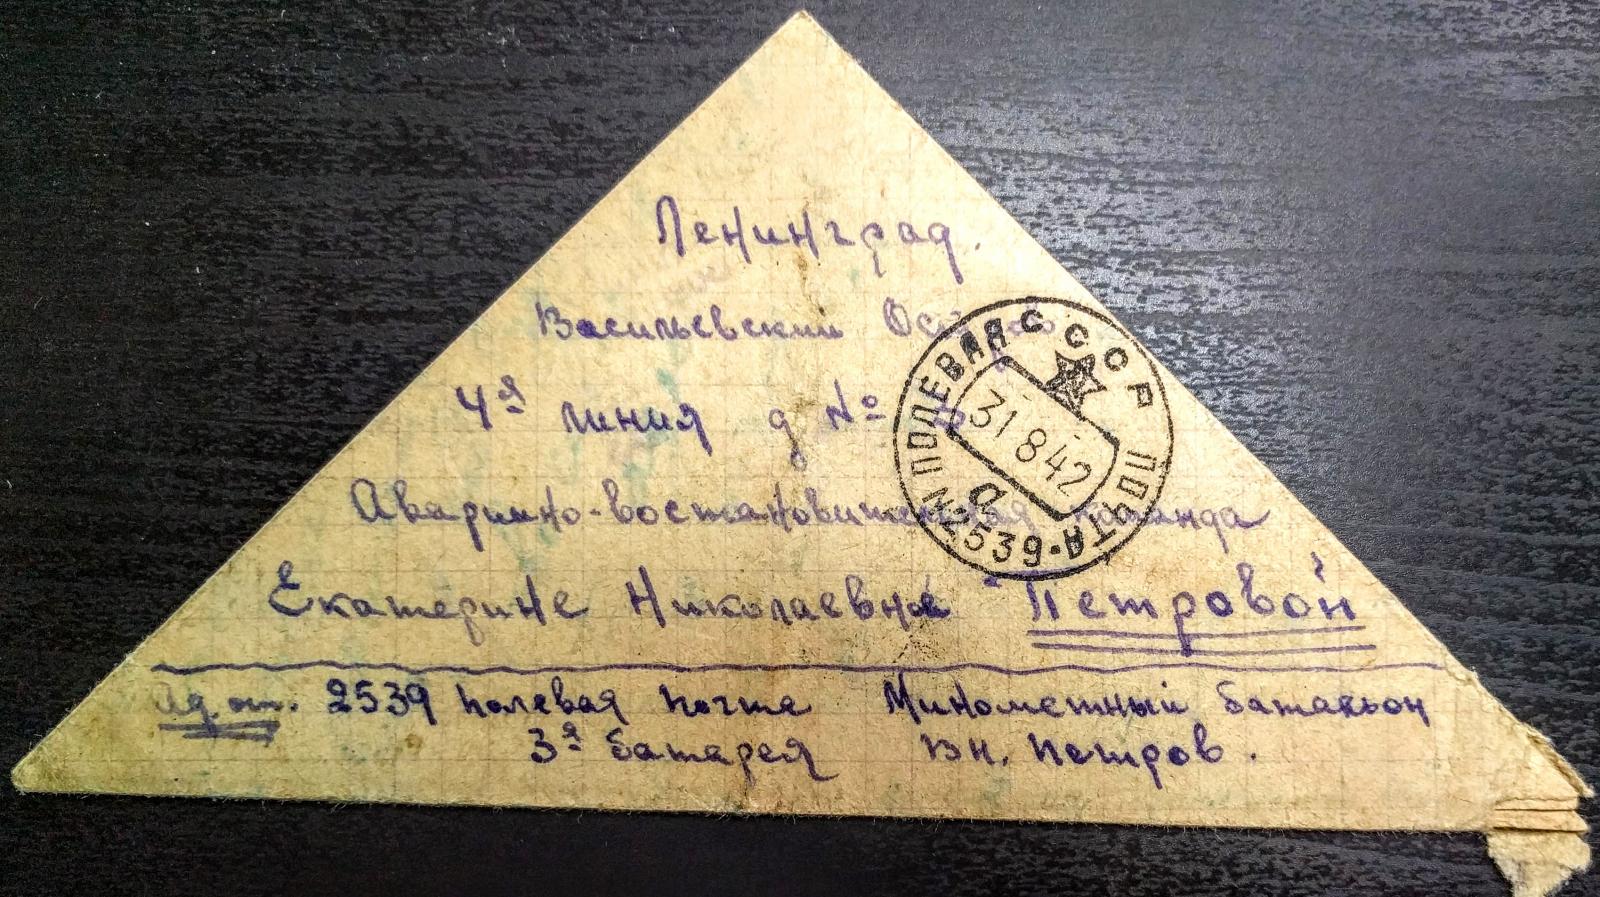 Ленинград.
Васильевский
4я линия д №
Аварийно-востановительная команда
Екатерине Николаевне Петровой
Ад. от. 2539 полевая почта Минометный батальон
3я батарея В Н. Петров.
СССР
ПОЛЕВАЯ ПОЧТА
31 8 42
а
N2539